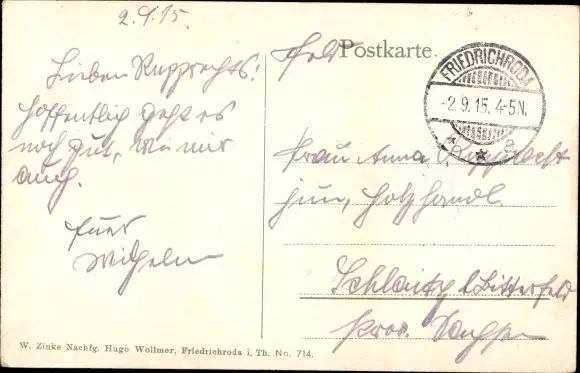 2.9.15.
Lieben Rupprechts!
Hoffentlich geht es
noch gut, wie mir
auch.
Euer
Wilhelm
Feld Postkarte.
FRIEDRICHRODA
-2.9.15. 4-5N.
* a
Frau Anna Rupprecht
jun, Holzhandl.
Schlaitz b/Bitterfeld
Prov. Sachsen
W. Zinke Nachfg. Hugo Wollmer, Friedrichroda i. Th. No. 714.